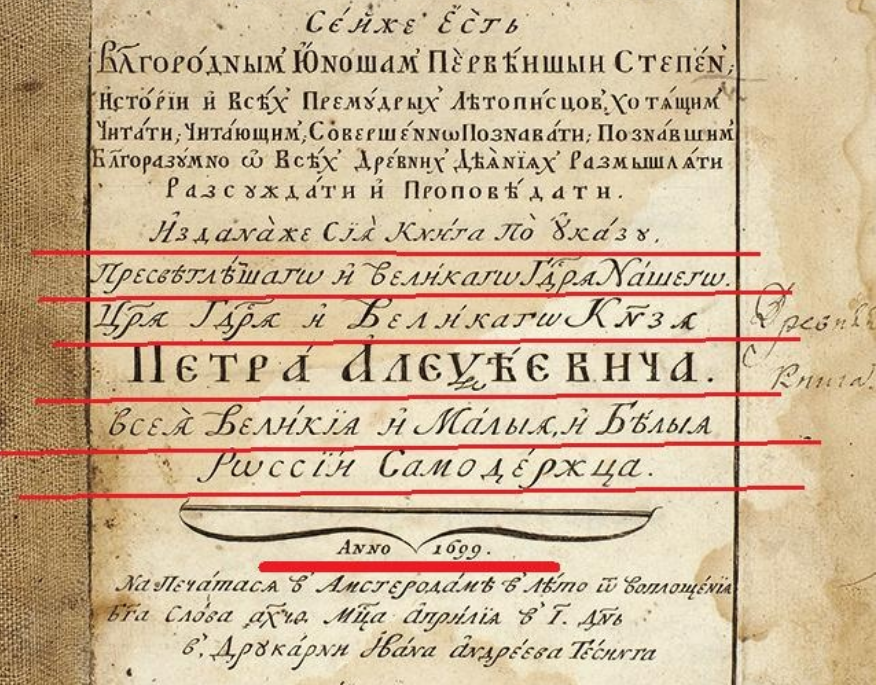 Се́йже Є҆́сть
Бл҃горо́днымъ Ю҆́ношамъ Пе́рвѣйшый Степе́нь;
И҆сто́рїи и҆ Всѣ́хъ Прему́дрыхъ Лѣтопи́сцовъ, Хотѧ́щимъ
Чита́ти; Чита́ющимъ, Соверше́ннѡ Познава́ти; Позна́вшимъ
Бл҃горазу́мно ѡ҆ Всѣ́хъ Дре́внихъ Дѣѧ́нїѧхъ Размышлѧ́ти
Разсꙋжда́ти и҆ Проповѣ́дати.
И҆здана́же Сїѧ̀ Кни́га По̀ Ꙋ҆ка́зꙋ,
Пресвѣтлѣ́шагѡ и҆ Вели́кагѡ Гдⷭ҇рѧ На́шегѡ.
Цр҃ѧ Гдⷭ҇рѧ и҆ Вели́кагѡ Кн҃зѧ
ПЕТРА́ А҆ЛЕѮѢ́ЕВИЧА.
всеѧ̀ Вели́кїѧ и҆ Ма́лыѧ, и҆ Бѣ́лыѧ
Рѡссі́и Самоде́ржца.
Anno 1699.
На Печа́тасѧ в̾ Амстерода́мѣ в̾ лѣ́то ѿ воплоще́нїѧ
Бг҃а Сло́ва ҂ахч҃ѳ. Мцⷭ҇а А҆прі́лїѧ в̾ І҃. дн҃ь
в̾, Дрꙋка́рни І҆ва́на А҆ндре́ева Те́синга
Древн
Книга.